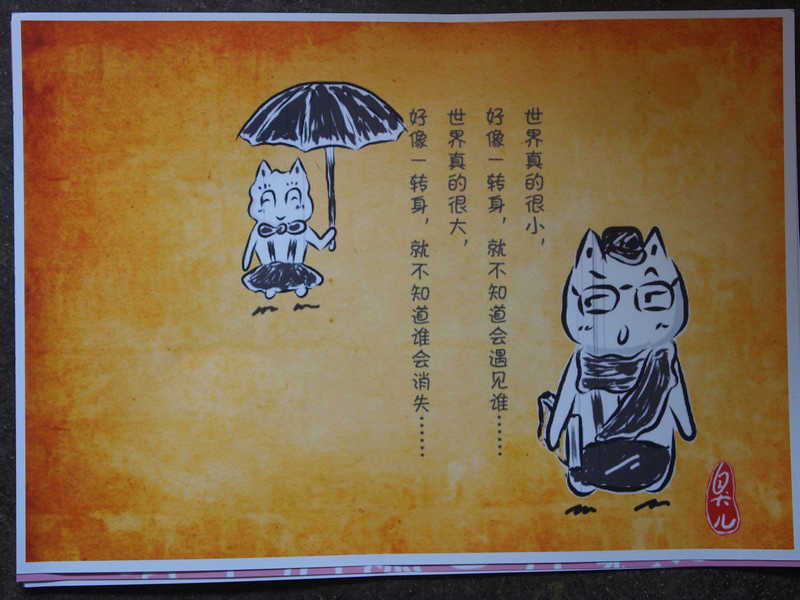 世界真的很小，
好像一转身，就不知道会遇见谁……
世界真的很大，
好像一转身，就不知道谁会消失……
臭儿